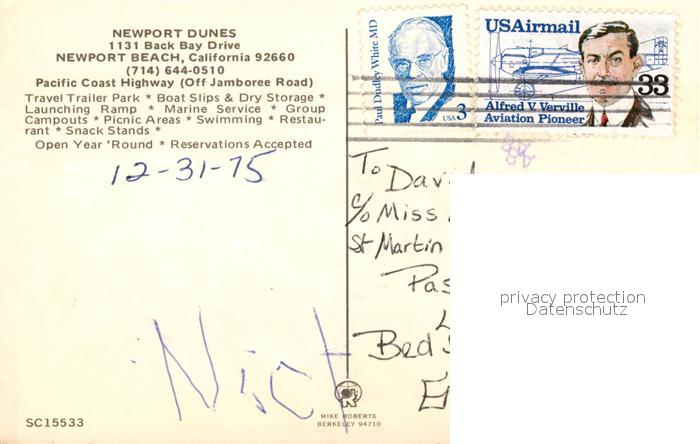 NEWPORT DUNES
1131 Back Bay Drive
NEWPORT BEACH, California 92660
(714) 644-0510
Pacific Coast Highway (Off Jamboree Road)
Travel Trailer Park * Boat Slips & Dry Storage *
Launching Ramp * Marine Service * Group
Campouts * Picnic Areas * Swimming * Restau-
rant * Snack Stands *
Open Year 'Round * Reservations Accepted
12-31-75
Paul Dudley White MD
USA 3
USAirmail
33
Alfred V. Verville
Aviation Pioneer
To David
c/o Miss
St Martin
Pas
L
Bed
E
privacy protection
Datenschutz
SC15533
MIKE ROBERTS
BERKELEY 94710